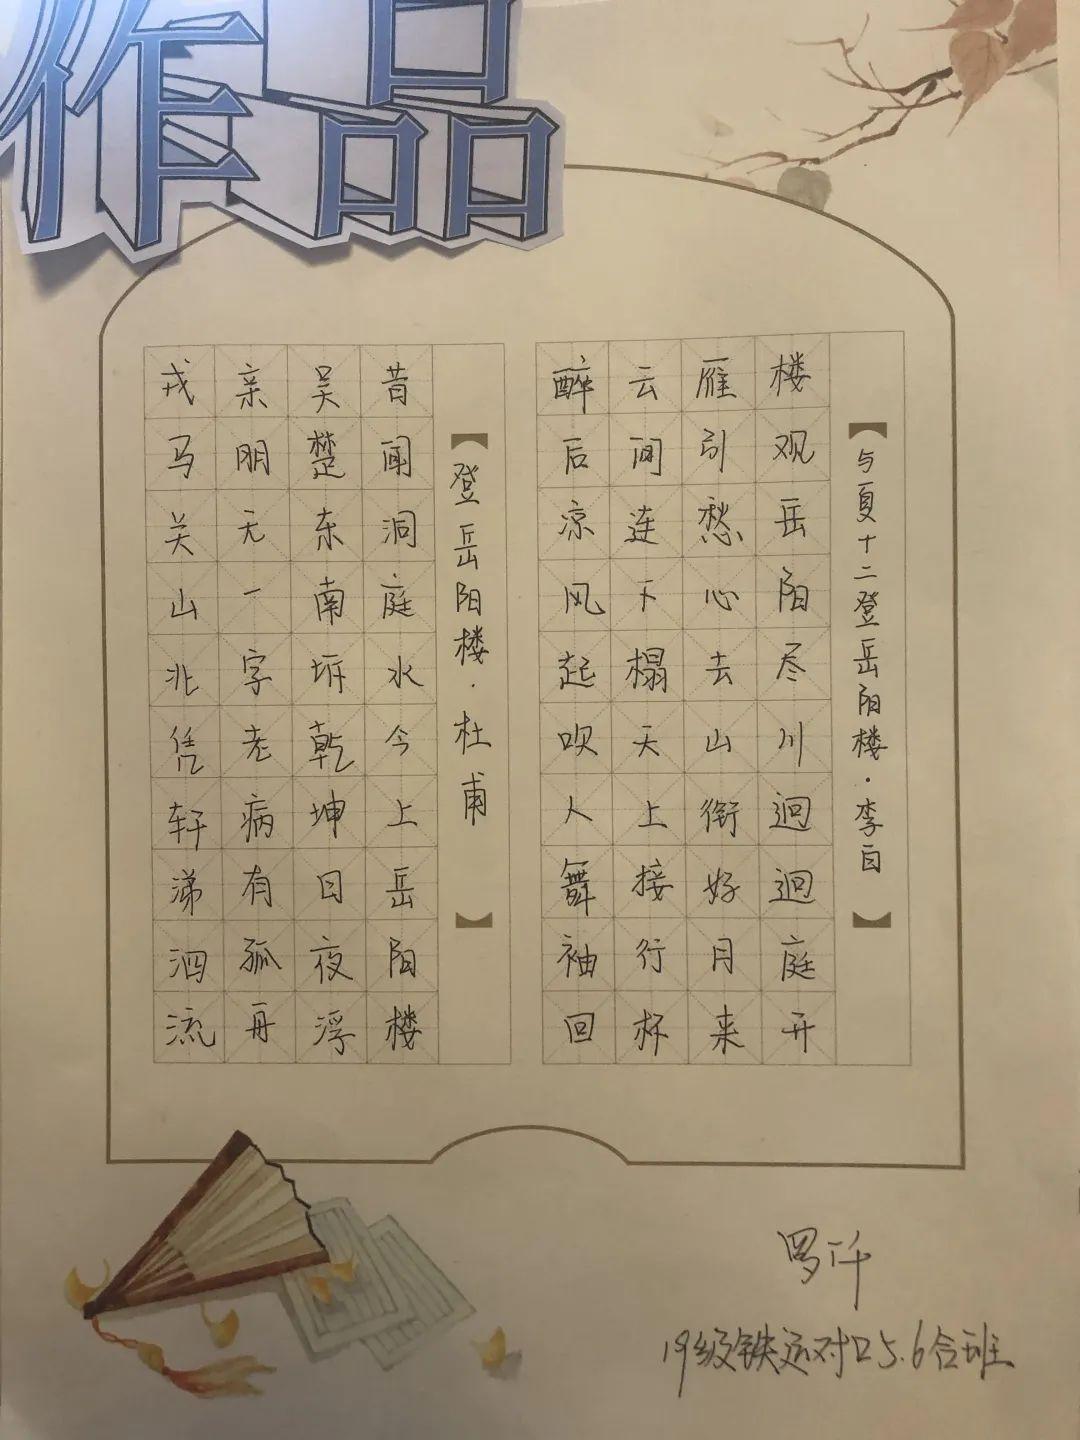 作品
【与夏十二登岳阳楼·李白】
楼观岳阳尽川迥迥庭开
雁引愁心去山衔好月来
云间连下榻天上接行杯
醉后凉风起吹人舞袖回
【登岳阳楼·杜甫】
昔闻洞庭水今上岳阳楼
吴楚东南坼乾坤日夜浮
亲朋无一字老病有孤舟
戎马关山北凭轩涕泗流
罗仟
19级铁运对口5.6合班